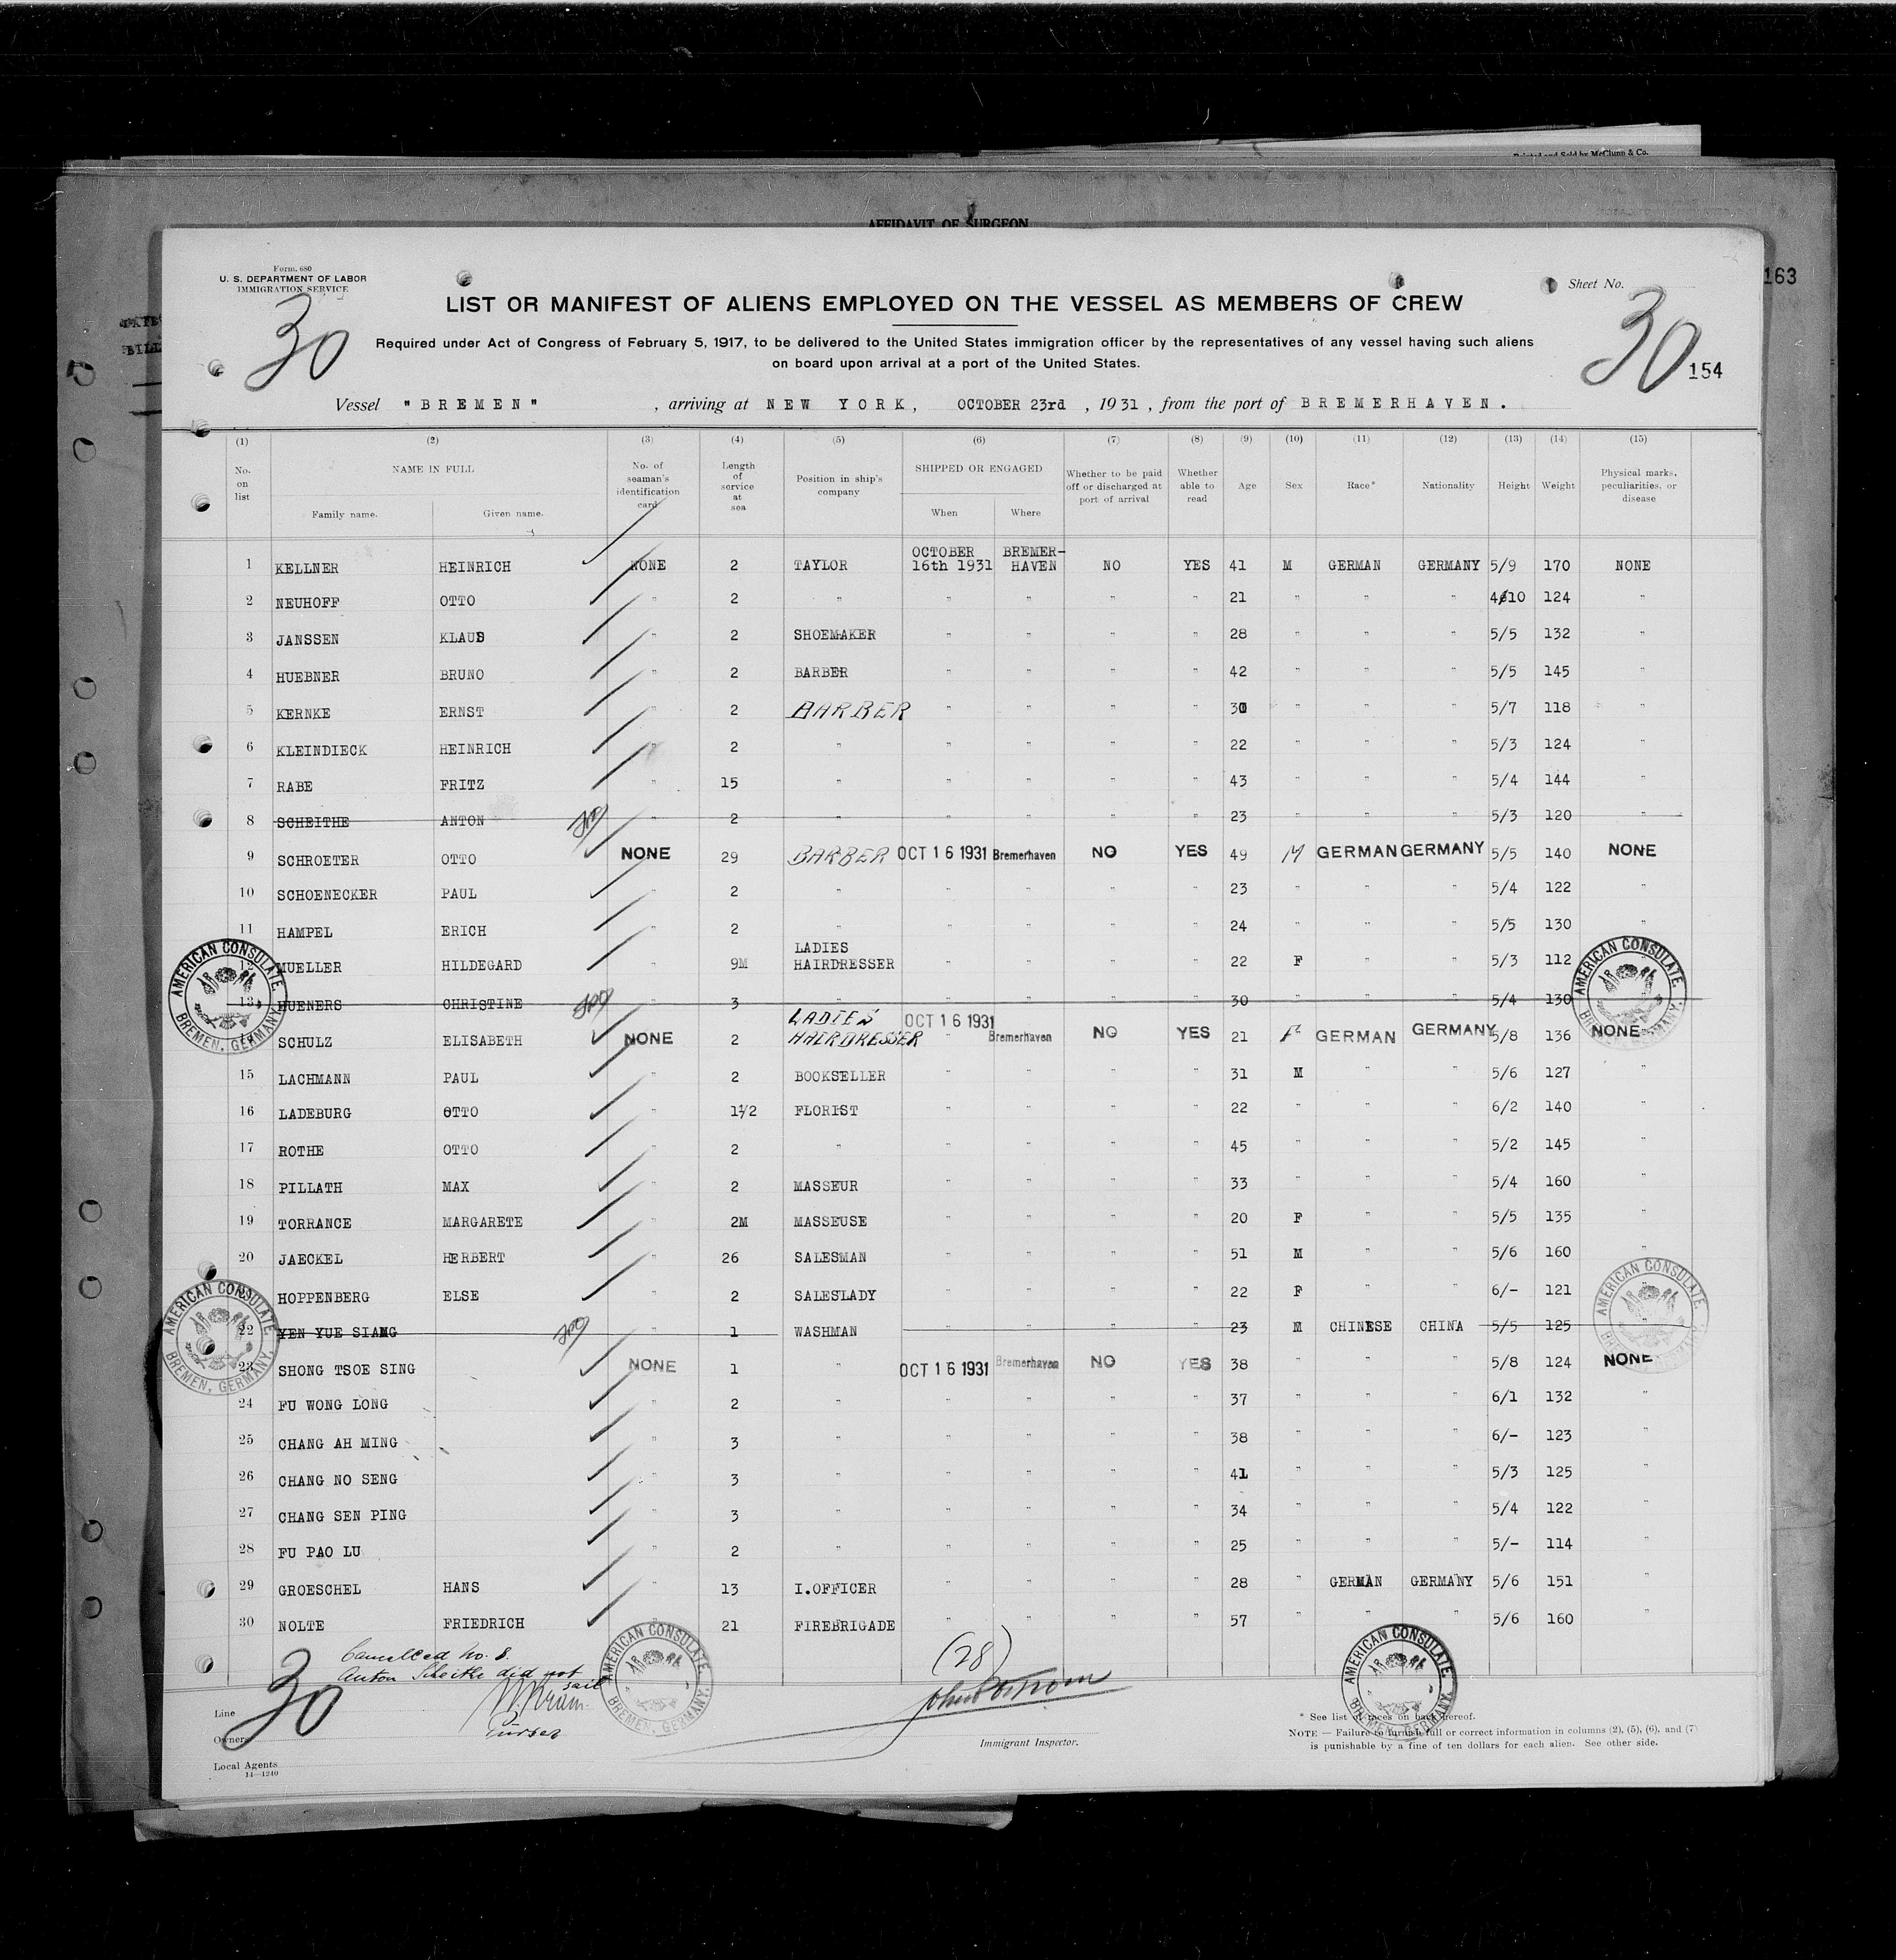 Printed and Sold by McClunn & Co.
AFFIDAVIT OF SURGEON
163
Form. 680
U. S. DEPARTMENT OF LABOR
IMMIGRATION SERVICE
Sheet No.
30
30
154
LIST OR MANIFEST OF ALIENS EMPLOYED ON THE VESSEL AS MEMBERS OF CREW
Required under Act of Congress of February 5, 1917, to be delivered to the United States immigration officer by the representatives of any vessel having such aliens
on board upon arrival at a port of the United States.
Vessel "BREMEN" , arriving at NEW YORK, OCTOBER 23rd , 1931 , from the port of BREMERHAVEN.
(1) (2) (3) (4) (5) (6) (7) (8) (9) (10) (11) (12) (13) (14) (15)
No. on list NAME IN FULL Family name. Given name. No. of seaman's identification card Length of service at sea Position in ship's company SHIPPED OR ENGAGED When Where Whether to be paid off or discharged at port of arrival Whether able to read Age Sex Race* Nationality Height Weight Physical marks, peculiarities, or disease
1 KELLNER HEINRICH NONE 2 TAYLOR OCTOBER 16th 1931 BREMER- HAVEN NO YES 41 M GERMAN GERMANY 5/9 170 NONE
2 NEUHOFF OTTO " 2 " " " " " 21 " " " 4/10 124 "
3 JANSSEN KLAUS " 2 SHOEMAKER " " " " 28 " " " 5/5 132 "
4 HUEBNER BRUNO " 2 BARBER " " " " 42 " " " 5/5 145 "
5 KERNKE ERNST " 2 BARBER " " " " 30 " " " 5/7 118 "
6 KLEINDIECK HEINRICH " 2 " " " " " 22 " " " 5/3 124 "
7 RABE FRITZ " 15 " " " " " 43 " " " 5/4 144 "
8 SCHEITHE ANTON " 2 " " " " " 23 " " " 5/3 120 "
9 SCHROETER OTTO NONE 29 BARBER OCT 16 1931 Bremerhaven NO YES 49 M GERMAN GERMANY 5/5 140 NONE
10 SCHOENECKER PAUL " 2 " " " " " 23 " " " 5/4 122 "
11 HAMPEL ERICH " 2 " " " " " 24 " " " 5/5 130 "
12 MUELLER HILDEGARD " 9M LADIES HAIRDRESSER " " " " 22 F " " 5/3 112 "
13 HUENERS CHRISTINE " 3 " " " " " 30 " " " 5/4 130
14 SCHULZ ELISABETH NONE 2 LADIES HAIRDRESSER OCT 16 1931 Bremerhaven NO YES 21 F GERMAN GERMANY 5/8 136 NONE
15 LACHMANN PAUL " 2 BOOKSELLER " " " " 31 M " " 5/6 127 "
16 LADEBURG OTTO " 1 1/2 FLORIST " " " " 22 " " " 6/2 140 "
17 ROTHE OTTO " 2 " " " " " 45 " " " 5/2 145 "
18 PILLATH MAX " 2 MASSEUR " " " " 33 " " " 5/4 160 "
19 TORRANCE MARGARETE " 2M MASSEUSE " " " " 20 F " " 5/5 135 "
20 JAECKEL HERBERT " 26 SALESMAN " " " " 51 M " " 5/6 160 "
21 HOPPENBERG ELSE " 2 SALESLADY " " " " 22 F " " 6/- 121 "
22 YEN YUE SIANG " 1 WASHMAN " " " " 23 M CHINESE CHINA 5/5 125
23 SHONG TSOE SING NONE 1 " OCT 16 1931 Bremerhaven NO YES 38 " " " 5/8 124 NONE
24 FU WONG LONG " 2 " " " " " 37 " " " 6/1 132 "
25 CHANG AH MING " 3 " " " " " 38 " " " 6/- 123 "
26 CHANG NO SENG " 3 " " " " " 41 " " " 5/3 125 "
27 CHANG SEN PING " 3 " " " " " 34 " " " 5/4 122 "
28 FU PAO LU " 2 " " " " " 25 " " " 5/- 114 "
29 GROESCHEL HANS " 13 I.OFFICER " " " " 28 " GERMAN GERMANY 5/6 151 "
30 NOLTE FRIEDRICH " 21 FIREBRIGADE " " " " 57 " " " 5/6 160 "
AMERICAN CONSULATE BREMEN, GERMANY.
AMERICAN CONSULATE BREMEN, GERMANY.
AMERICAN CONSULATE. BREMEN, GERMANY.
AMERICAN CONSULATE. BREMEN, GERMANY.
AMERICAN CONSULATE. BREMEN, GERMANY.
AMERICAN CONSULATE. BREMEN, GERMANY.
Cancelled No. 8.
Anton Scheithe did not
sail
Purser
(28)
30
Line
Owners
Local Agents
14—1240
Immigrant Inspector.
* See list of races on back hereof.
NOTE — Failure to furnish full or correct information in columns (2), (5), (6), and (7)
is punishable by a fine of ten dollars for each alien. See other side.